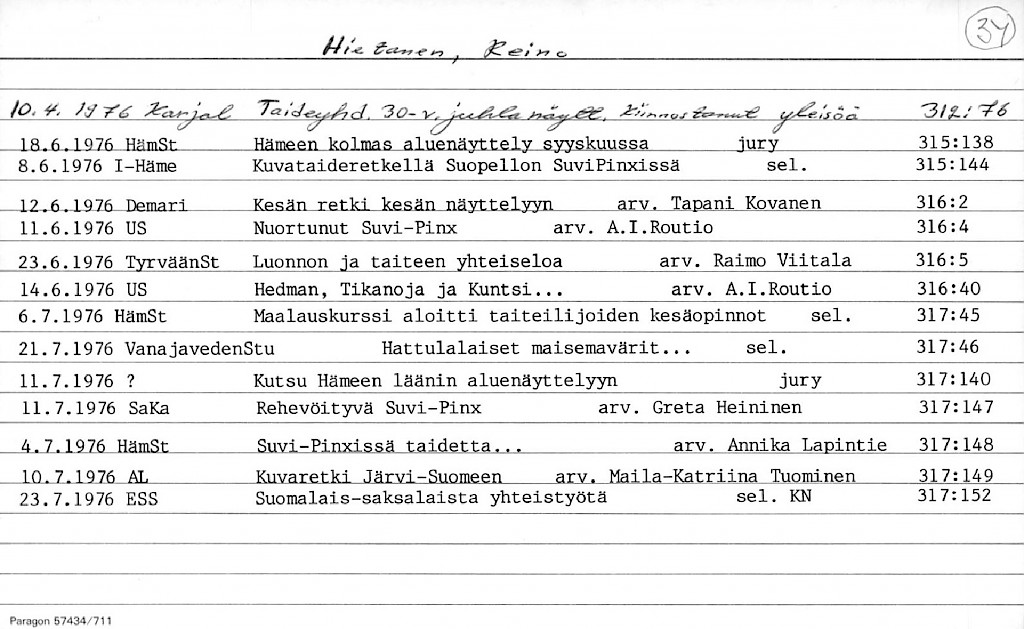 34
Hietanen, Reino
10.4.1976 Karjal Taideyhd. 30-v. juhlanäytt. kiinnostanut yleisöä 312:76
18.6.1976 HämSt Hämeen kolmas aluenäyttely syyskuussa jury 315:138
8.6.1976 I-Häme Kuvataideretkellä Suopellon SuviPinxissä sel. 315:144
12.6.1976 Demari Kesän retki kesän näyttelyyn arv. Tapani Kovanen 316:2
11.6.1976 US Nuortunut Suvi-Pinx arv. A.I.Routio 316:4
23.6.1976 TyrväänSt Luonnon ja taiteen yhteiseloa arv. Raimo Viitala 316:5
14.6.1976 US Hedman, Tikanoja ja Kuntsi... arv. A.I.Routio 316:40
6.7.1976 HämSt Maalauskurssi aloitti taiteilijoiden kesäopinnot sel. 317:45
21.7.1976 VanajavedenStu Hattulalaiset maisemavärit... sel. 317:46
11.7.1976 ? Kutsu Hämeen läänin aluenäyttelyyn jury 317:140
11.7.1976 SaKa Rehevöityvä Suvi-Pinx arv. Greta Heininen 317:147
4.7.1976 HämSt Suvi-Pinxissä taidetta... arv. Annika Lapintie 317:148
10.7.1976 AL Kuvaretki Järvi-Suomeen arv. Maila-Katriina Tuominen 317:149
23.7.1976 ESS Suomalais-saksalaista yhteistyötä sel. KN 317:152
Paragon 57434/711